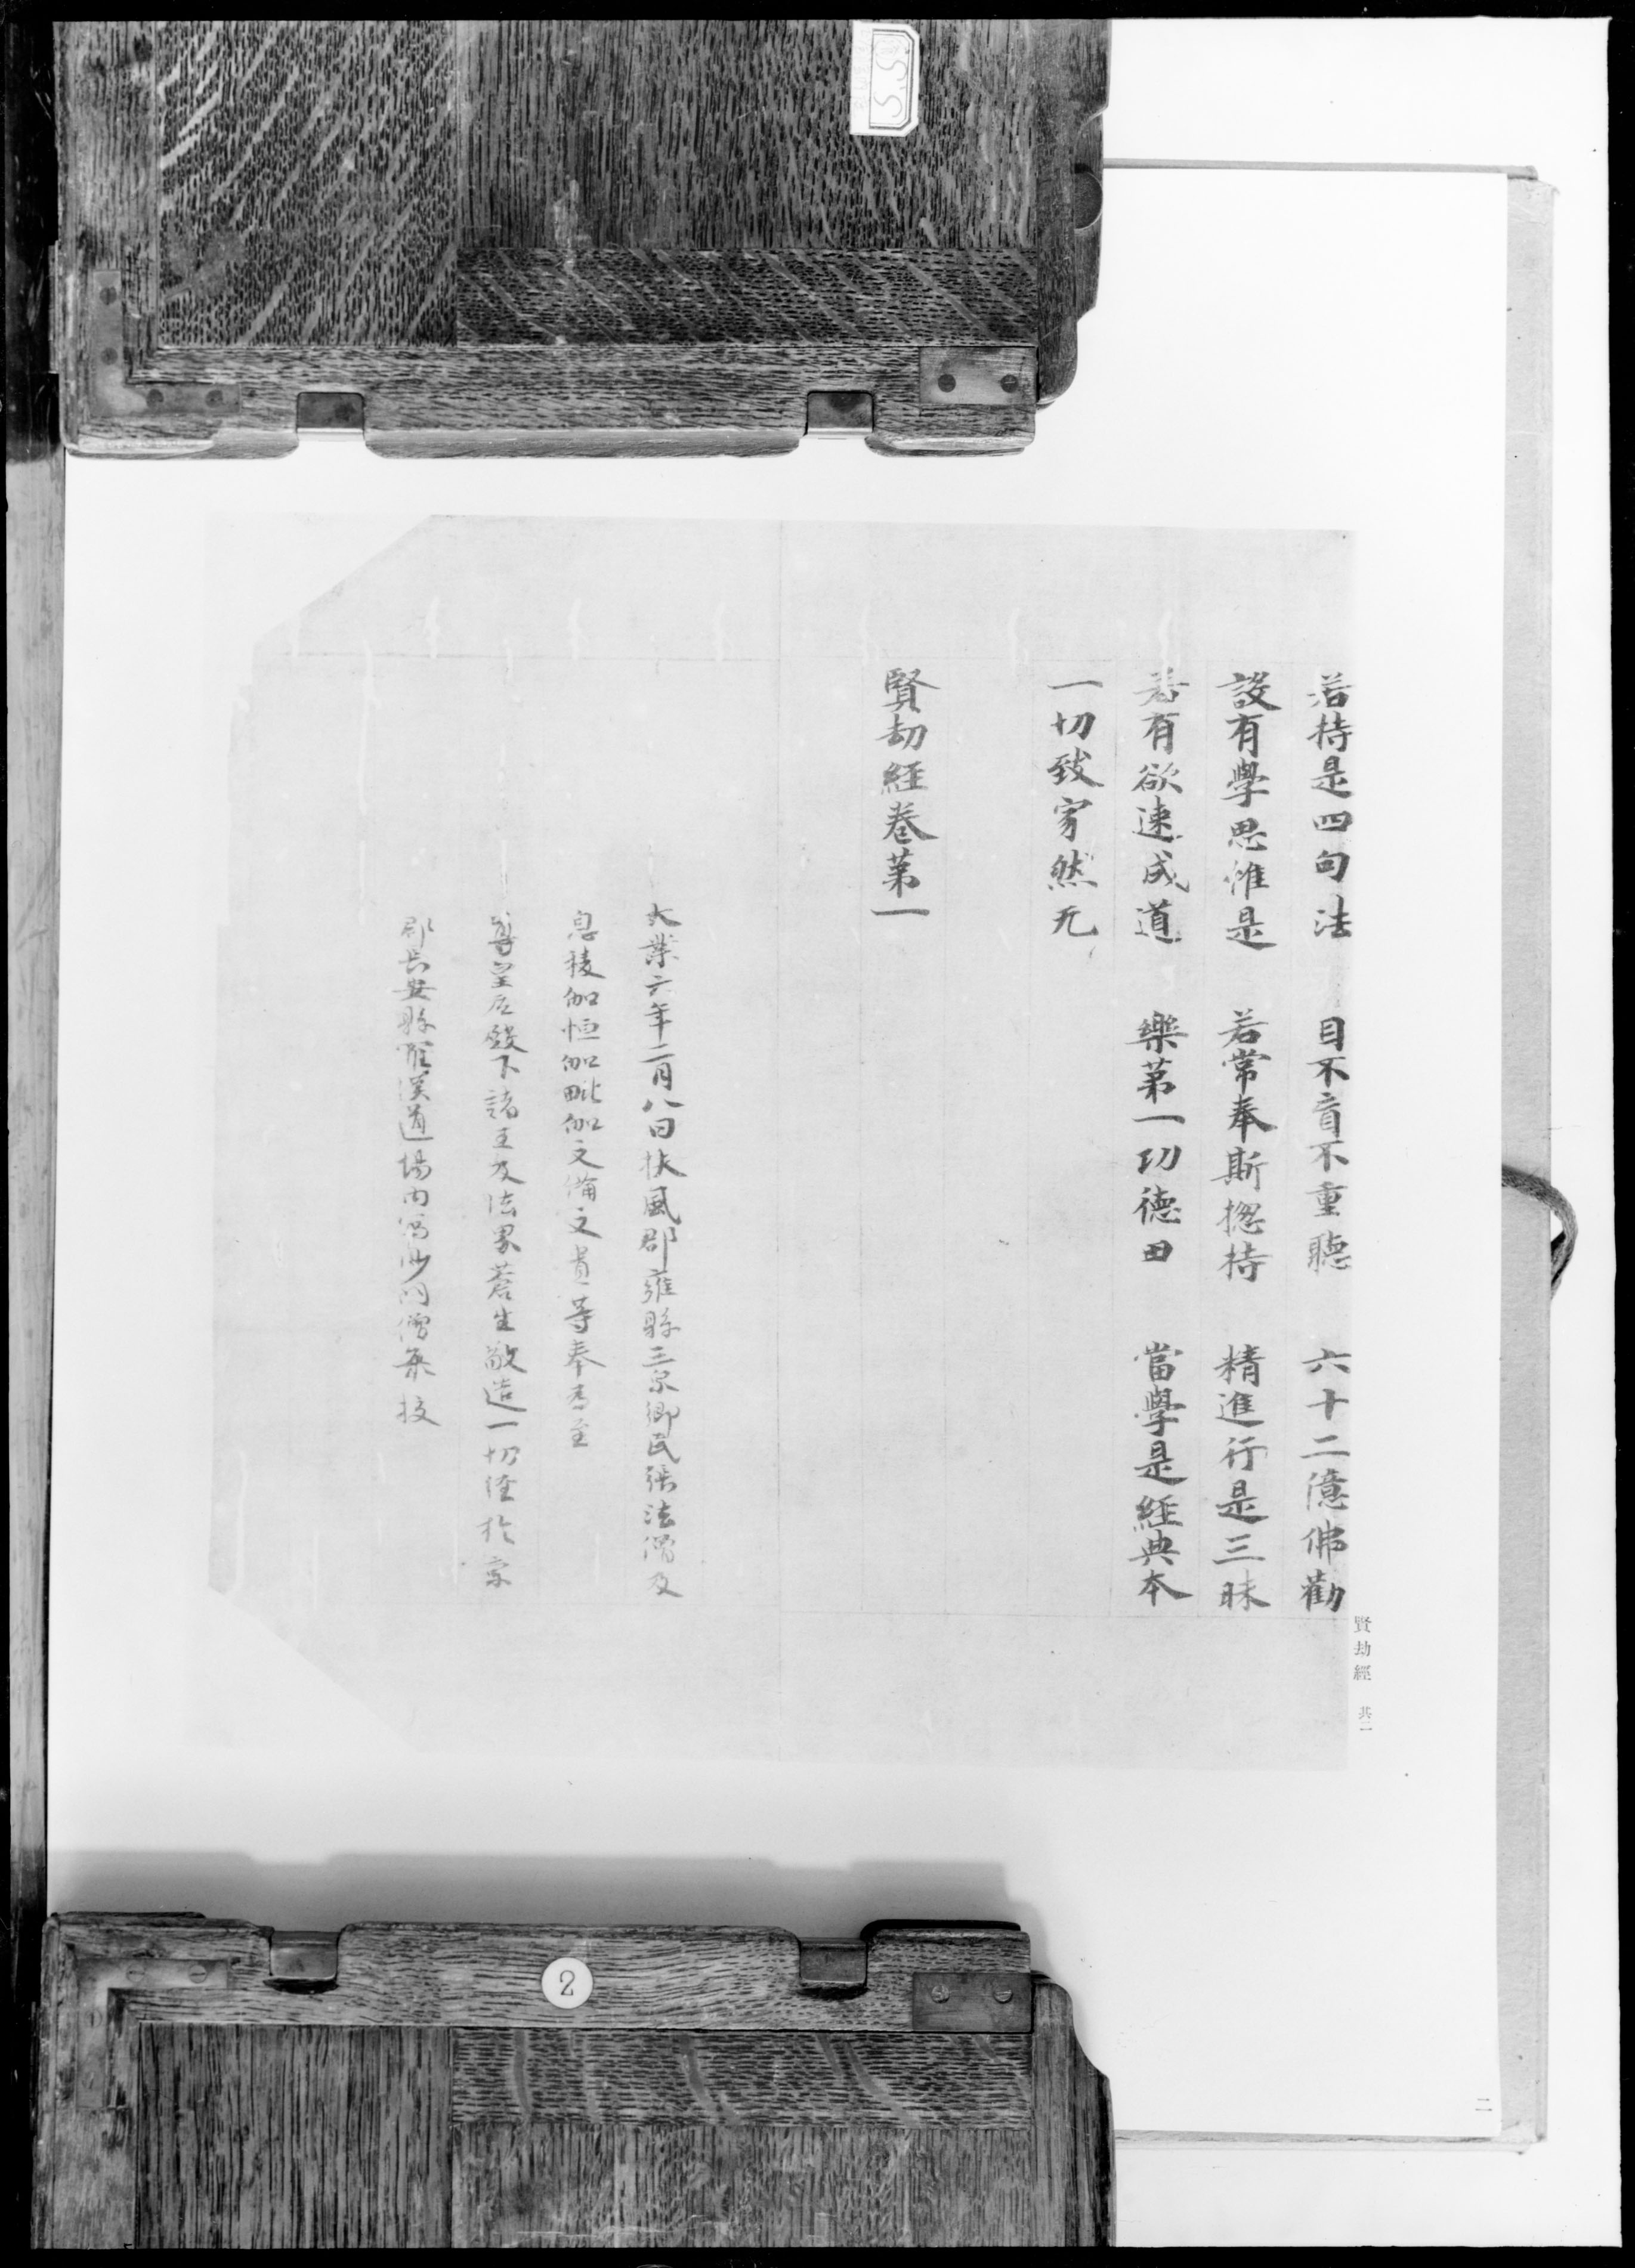 若持是四句法　目不盲不重聽　六十二億佛勸
設有學思惟是　若常奉斯揔持　精進行是三昧
若有欲速成道　樂第一功德田　當學是經典本
一切致寂然无
賢劫經卷第一
大業六年二月八日扶風郡雍縣三泉鄉民張法僧及
息稜伽恒伽毗伽文備文貴等奉為至
尊皇后殿下諸王及法界蒼生敬造一切經於京
郡長安縣羅漢道場內寫沙門僧校
賢劫經 其二
二
2